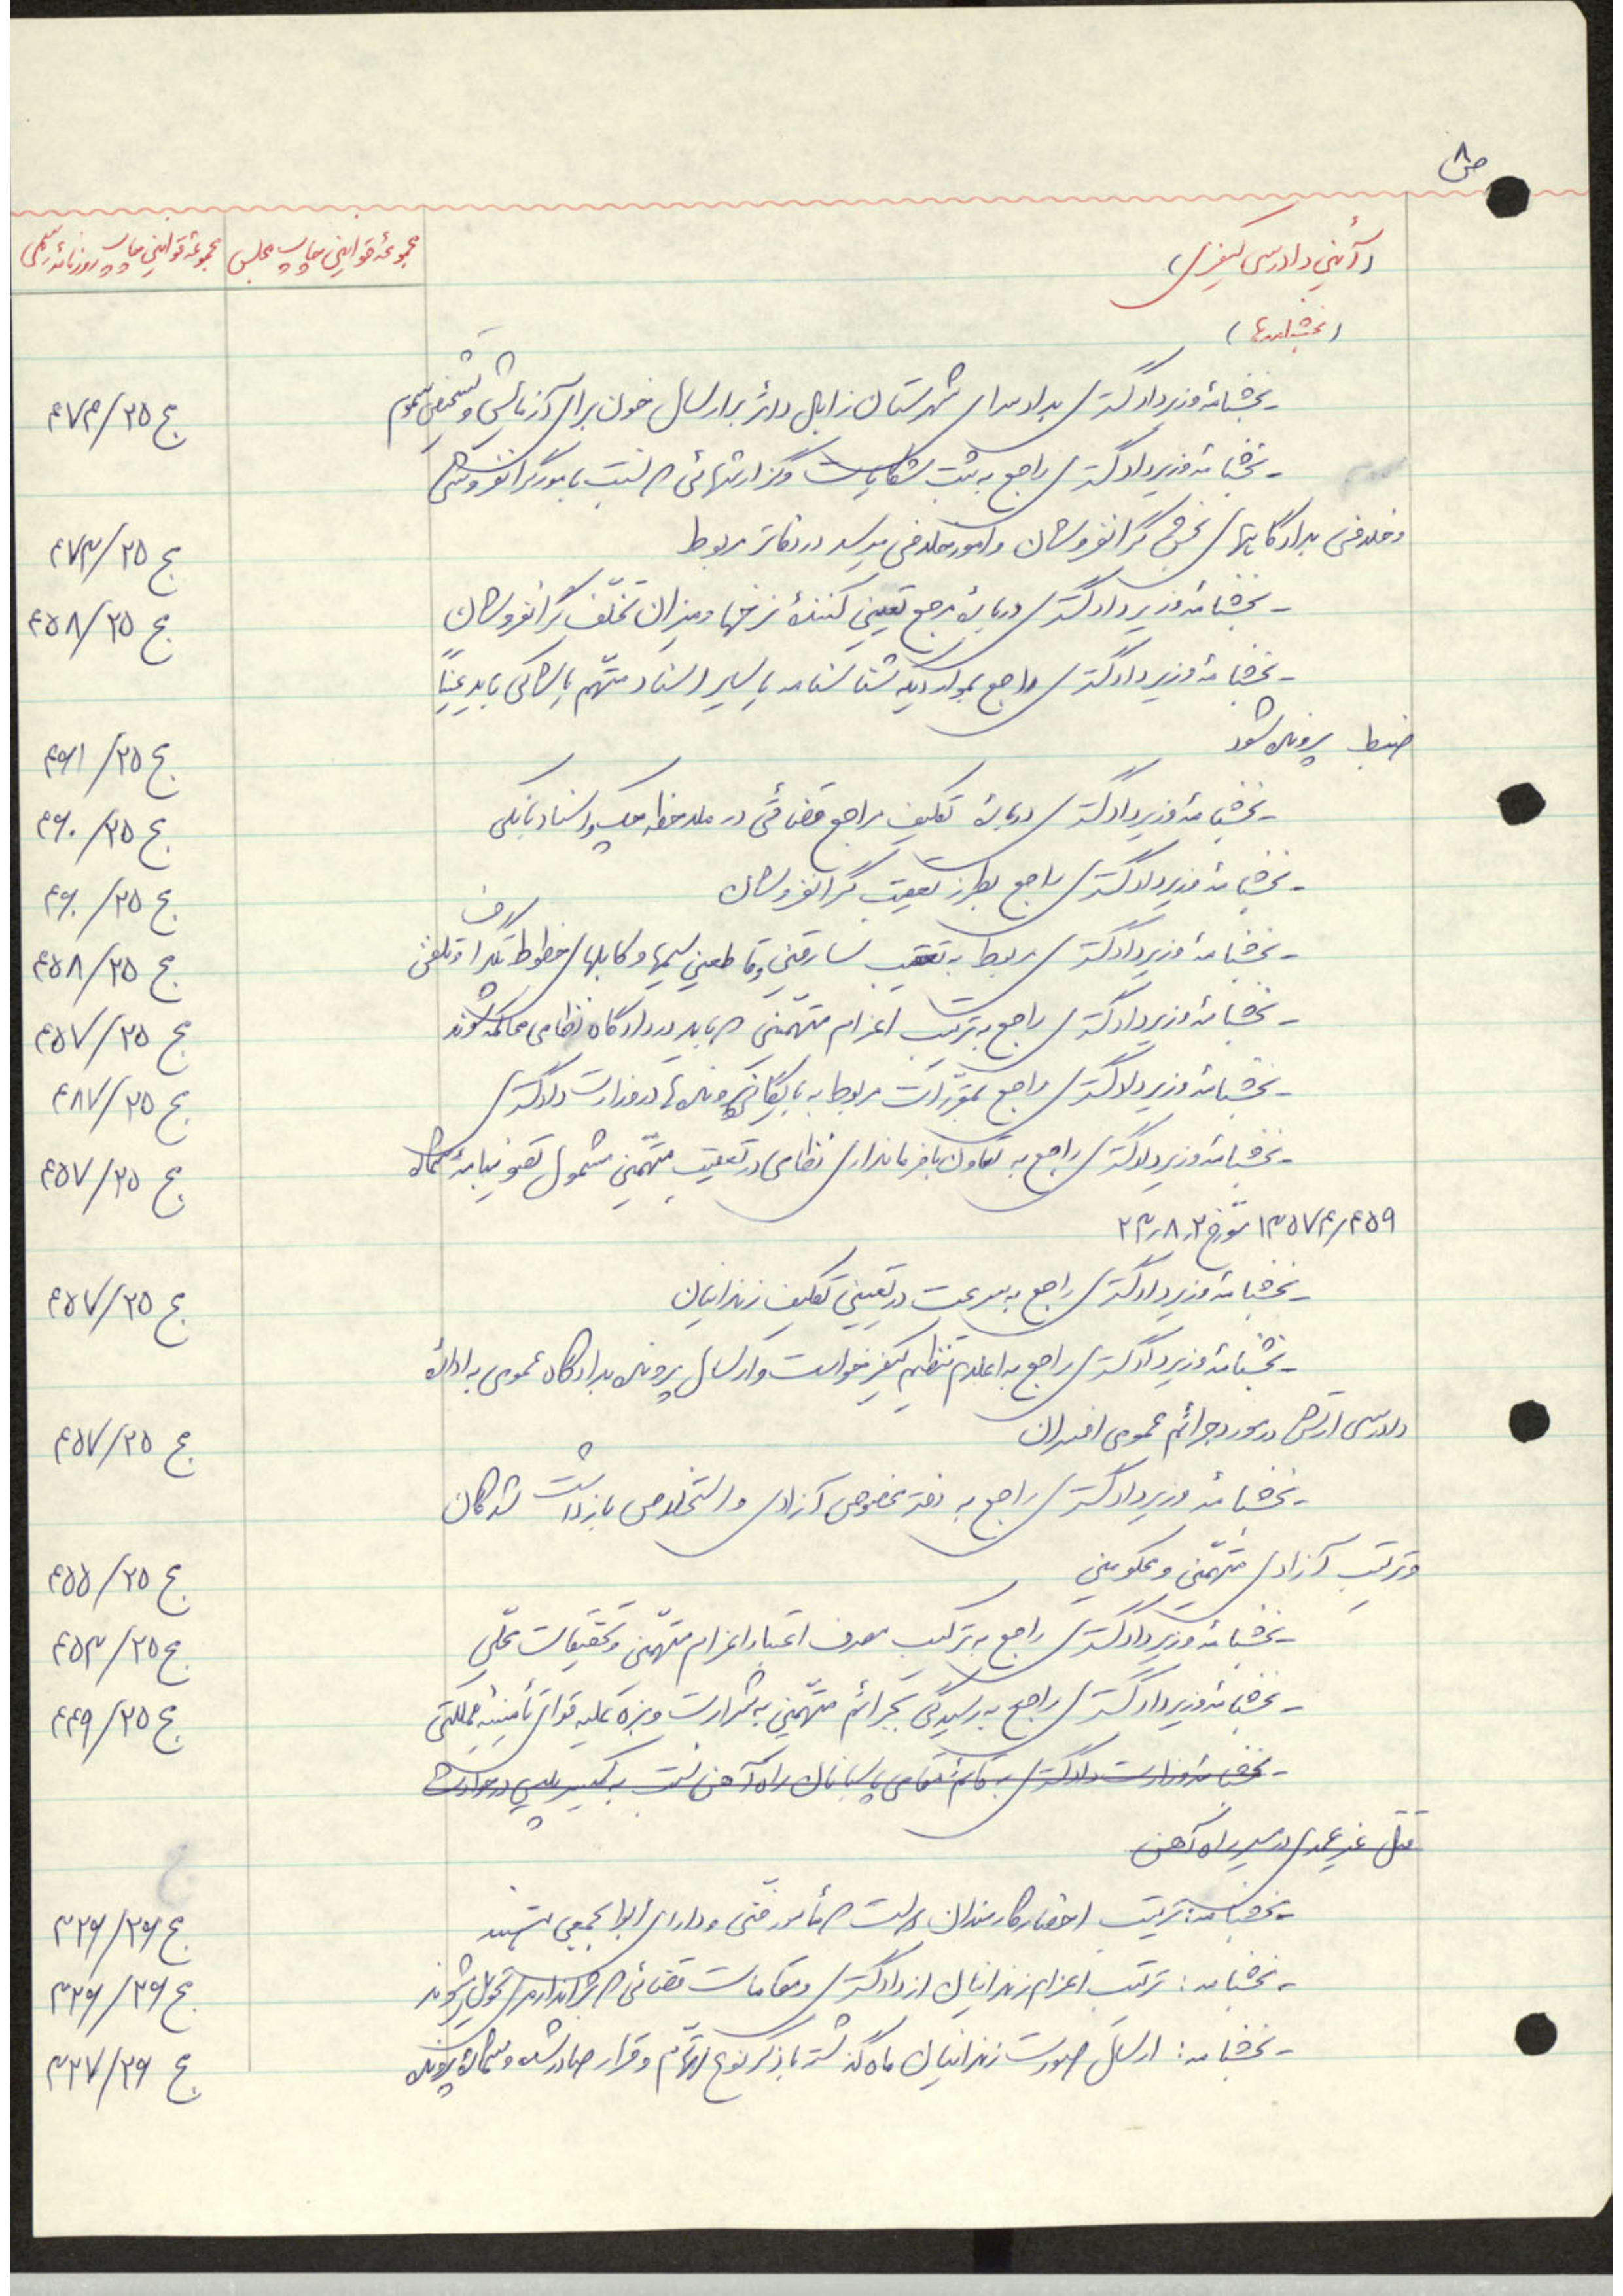 ص ۸
(آئین دادرسی کیفری)
مجموعهٔ قوانین چاپ مجلس
مجموعهٔ قوانین چاپ روزنامهٔ رسمی
(بخشنامه‌ها)
- بخشنامهٔ وزیر دادگستری بدادسرای شهرستان زابل دائر بر ارسال خون برای آزمایش و تشخیص سموم ج ۲۵/۴۷۴
- بخشنامهٔ وزیر دادگستری راجع به ثبت شکایات و گزارشهائی که نسبت بامور گرانفروشی
و خلافی بدادگاههای بخش گرانفروشان و امور خلافی میرسد در دفاتر مربوط ج ۲۵/۴۷۳
- بخشنامهٔ وزیر دادگستری دربارهٔ مرجع تعیین کنندهٔ نرخها و میزان تخلّف گرانفروشان ج ۲۵/۴۵۸
- بخشنامهٔ وزیر دادگستری راجع بمواردیکه شناسنامه یا سایر اسناد متهّم یا شاکی باید عیناً
ضبط پرونده شود ج ۲۵/۴۶۱
- بخشنامهٔ وزیر دادگستری دربارهٔ تکلیف مراجع قضائی در ملاحظه چک و اسناد بانکی ج ۲۵/۴۶۰
- بخشنامهٔ وزیر دادگستری راجع بطرز تعقیب گرانفروشان ج ۲۵/۴۶۰
- بخشنامهٔ وزیر دادگستری مربوط به تعقیب سارقین و قاطعین سیمها و کابلهای خطوط تلگراف و تلفن ج ۲۵/۴۵۸
- بخشنامهٔ وزیر دادگستری راجع به ترتیب اعزام متهّمینی که باید در دادگاه نظامی محاکمه شوند ج ۲۵/۴۵۷
- بخشنامهٔ وزیر دادگستری راجع بمقرّرات مربوط به بایگانی پرونده‌ها در وزارت دادگستری ج ۲۵/۴۸۷
- بخشنامهٔ وزیر دادگستری راجع به تعاون با فرمانداری نظامی در تعقیب متهّمین مشمول تصویبنامهٔ شماره ج ۲۵/۴۵۷
۱۳۵۷۴/۴۵۹ مورّخ ۲۳٫۸٫۲
- بخشنامهٔ وزیر دادگستری راجع به سرعت در تعیین تکلیف زندانیان ج ۲۵/۴۵۷
- بخشنامهٔ وزیر دادگستری راجع به اعلام تنظیم کیفرخواست و ارسال پرونده بدادگاه عمومی به ادارهٔ
دادرسی ارتش در مورد جرائم عمومی افسران ج ۲۵/۴۵۷
- بخشنامهٔ وزیر دادگستری راجع به دفتر مخصوص آزادی و استخلاص بازداشت شدگان
و ترتیب آزادی متهّمین و محکومین ج ۲۵/۴۵۵
- بخشنامهٔ وزیر دادگستری راجع به ترکیب مصرف اعتبار اعزام متهّمین و تحقیقات محلّی ج ۲۵/۴۵۳
- بخشنامهٔ وزیر دادگستری راجع به رسیدگی بجرائم متهّمین به شرارت و بزه علیه قوای تأمینیّه مملکتی ج ۲۵/۴۴۹
- بخشنامهٔ وزارت دادگستری به قائم‌مقامی پاسبانان راه‌آهن نسبت به پلیس در حوادث
قتل غیر عمدی در مسیر راه آهن
- بخشنامه: ترتیب احضار کارمندان دولت که مأمور فنّی و دارای ابوابجمعی هستند ج ۲۶/۳۲۶
- بخشنامه: ترتیب اعزام زندانیان از دادگستری و مقامات قضائی که بژاندارمری تحویل میشوند ج ۲۶/۳۲۶
- بخشنامه: ارسال صورت زندانیان ماه گذشته با ذکر نوع اتهّام و قرار صادر شده و شمارهٔ پرونده ج ۲۶/۳۲۷